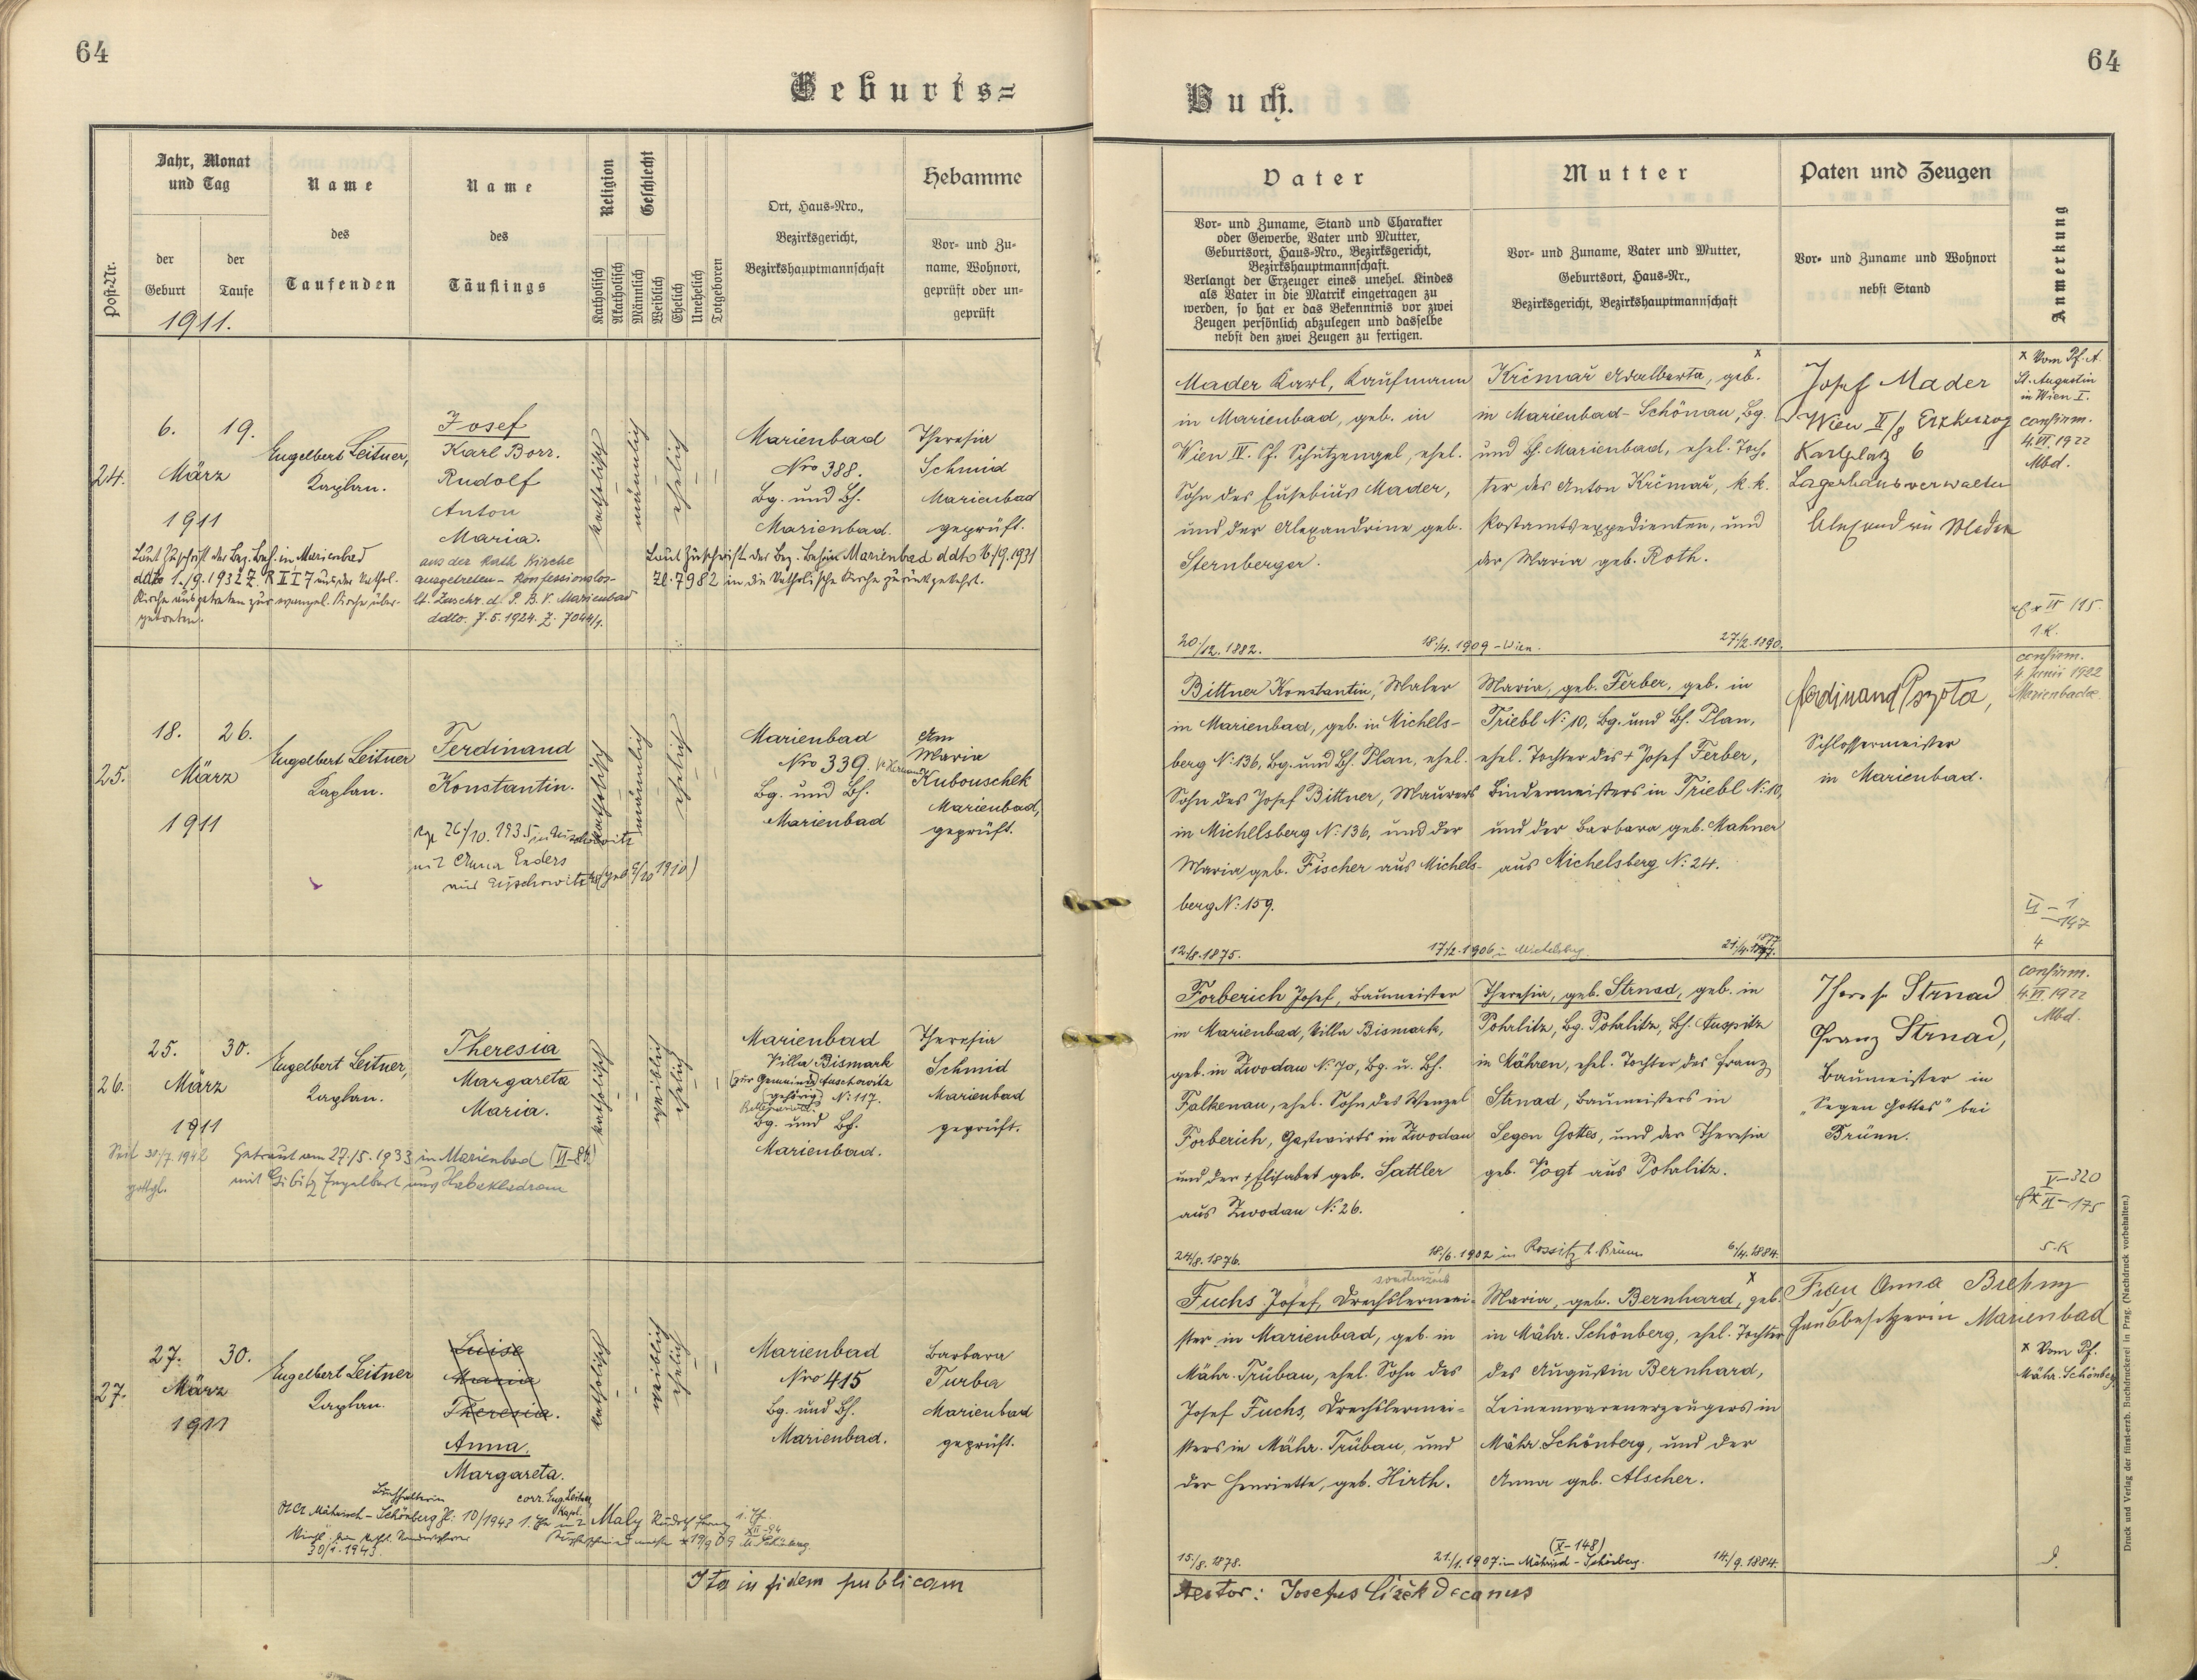 64
64
Geburts=
Buch.
Post-Nr.
Jahr, Monat
und Tag
der
Geburt
der
Taufe
1911.
Name
des
Taufenden
Name
des
Täuflings
Religion
Katholisch
Akatholisch
Geschlecht
Männlich
Weiblich
Ehelich
Unehelich
Totgeboren
Ort, Haus=Nro.,
Bezirksgericht,
Bezirkshauptmannschaft
Hebamme
Vor= und Zu=
name, Wohnort,
geprüft oder un=
geprüft
Vater
Vor= und Zuname, Stand und Charakter
oder Gewerbe, Vater und Mutter,
Geburtsort, Haus=Nro., Bezirksgericht,
Bezirkshauptmannschaft.
Verlangt der Erzeuger eines unehel. Kindes
als Vater in die Matrik eingetragen zu
werden, so hat er das Bekenntnis vor zwei
Zeugen persönlich abzulegen und dasselbe
nebst den zwei Zeugen zu fertigen.
Mutter
Vor= und Zuname, Vater und Mutter,
Geburtsort, Haus=Nr.,
Bezirksgericht, Bezirkshauptmannschaft
Paten und Zeugen
Vor= und Zuname und Wohnort
nebst Stand
Anmerkung
24.
6. 19.
März
1911
Engelbert Leitner,
Kaplan.
Josef
Karl Borr.
Rudolf
Anton
Maria.
katholisch
männlich
ehelich
Marienbad
Nro 388.
Bg. und Bh.
Marienbad.
Theresia
Schmid
Marienbad
geprüft.
Laut Zuschrift der Bez. Beh. in Marienbad
ddto 1./9. 1932 Z. R II 7 aus der kathol.
Kirche ausgetreten zur evangel. Kirche über-
getreten.
aus der kath. Kirche
ausgetreten - Konfessionslos -
lt. Zuschr. d. P. B. V. Marienbad
ddto. 7. 5. 1924. Z. 7044/1.
Laut Zuschrift der Bez. Beh. in Marienbad ddto 16./9. 1931
Zl. 7982 in die katholische Kirche zurückgekehrt.
Mader Karl, Kaufmann
in Marienbad, geb. in
Wien IV. Pf. Schutzengel, ehel.
Sohn des Eusebius Mader,
und der Alexandrine geb.
Sternberger.
20/12. 1882.
18./4. 1909 - Wien.
x
Krčmař Adalberta, geb.
in Marienbad-Schönau, Bg.
und Bh. Marienbad, ehel. Toch-
ter des Anton Krčmař, k. k.
Postamtsexpedienten, und
der Maria geb. Roth.
27./2. 1890.
Josef Mader
Wien II/8 Erzherzog
Karlplatz 6
Lagerhausverwalter
Alexandrine Mader
x Vom Pf. A.
St. Augustin
in Wien I.
confirm.
4. VI. 1922
Mbd.
II 115.
1. K.
25.
18. 26.
März
1911
Engelbert Leitner
Kaplan.
Ferdinand
Konstantin.
katholisch
männlich
ehelich
Marienbad
Nro 339.
Bg. und Bh.
Marienbad
Maria
Kubouschek
Marienbad,
geprüft.
26./10. 1935 in Auschowitz
mit Anna Enders
aus Auschowitz (geb. 6/10 1910)
Bittner Konstantin, Maler
in Marienbad, geb. in Michels-
berg N: 136, Bg. und Bh. Plan, ehel.
Sohn des Josef Bittner, Maurers
in Michelsberg N: 136, und der
Maria geb. Fischer aus Michels-
berg N: 159.
12./8. 1875.
17./2. 1906 in Michelsbg.
Maria, geb. Ferber, geb. in
Triebl N: 10, Bg. und Bh. Plan,
ehel. Tochter des + Josef Ferber,
Bindermeisters in Triebl N: 10,
und der Barbara geb. Mahner
aus Michelsberg N: 24.
21./4. 1877
Ferdinand
Schlossermeister
in Marienbad.
confirm.
4 Junii 1922
Marienbadæ.
VI - 1
147
4
26.
25. 30.
März
1911
Engelbert Leitner,
Kaplan.
Theresia
Margareta
Maria.
katholisch
weiblich
ehelich
Marienbad
Villa Bismark
(zur Gemeinde Auschowitz
gehörig) N: 117.
Bg. und Bh.
Marienbad.
Theresia
Schmid
Marienbad
geprüft.
Seit 30/7. 1942
gottgl.
Getraut am 27./5. 1933 in Marienbad (VI-84)
mit Gibitz Engelbert aus Habakladrau
Forberich Josef, Baumeister
in Marienbad, Villa Bismark,
geb. in Zwodau N: 70, Bg. u. Bh.
Falkenau, ehel. Sohn des Wenzel
Forberich, Gastwirts in Zwodau
und der + Elisabet geb. Sattler
aus Zwodau N: 26.
24/8. 1876.
18./6. 1902 in Rossitz b. Brünn
Theresia, geb. Strnad, geb. in
Pohrlitz, Bg. Pohrlitz, Bh. Auspitz
in Mähren, ehel. Tochter des Franz
Strnad, Baumeisters in
Segen Gottes, und der Theresia
geb. Vogt aus Pohrlitz.
6./4. 1884.
Therese Strnad
Franz Strnad,
Baumeister in
„Segen Gottes" bei
Brünn.
confirm.
4. VI. 1922
Mbd.
V-320
II-175
5. K
27.
27. 30.
März
1911
Engelbert Leitner
Kaplan.
Luise
Maria
Theresia.
Anna.
Margareta.
corr. Eng. Leitner
Kapl.
katholisch
weiblich
ehelich
Marienbad
Nro 415
Bg. und Bh.
Marienbad.
Barbara
Turba
Marienbad
geprüft.
Buchhalterin
Mährisch-Schönberg Zl: 10/1943
Maly Rudolf Franz
30/1. 1943.
Fuchs Josef, Drechslermei-
ster in Marienbad, geb. in
Mähr. Trübau, ehel. Sohn des
Josef Fuchs, Drechslermei-
sters in Mähr. Trübau, und
der Henriette, geb. Hirth.
15/8. 1878.
(X-148)
21./1. 1907 in Mährisch-Schönberg.
x
Maria, geb. Bernhard, geb.
in Mähr. Schönberg, ehel. Tochter
des Augustin Bernhard,
Leinenwarenerzeugers in
Mähr. Schönberg, und der
Anna geb. Alscher.
14./9. 1884.
Frau Anna
Hausbesitzerin Marienbad
x Vom Pf.
Mähr. Schönberg
Ita in fidem publicam
Testor: Josefus Čížek Decanus
Druck und Verlag der fürst-erzb. Buchdruckerei in Prag. (Nachdruck vorbehalten.)